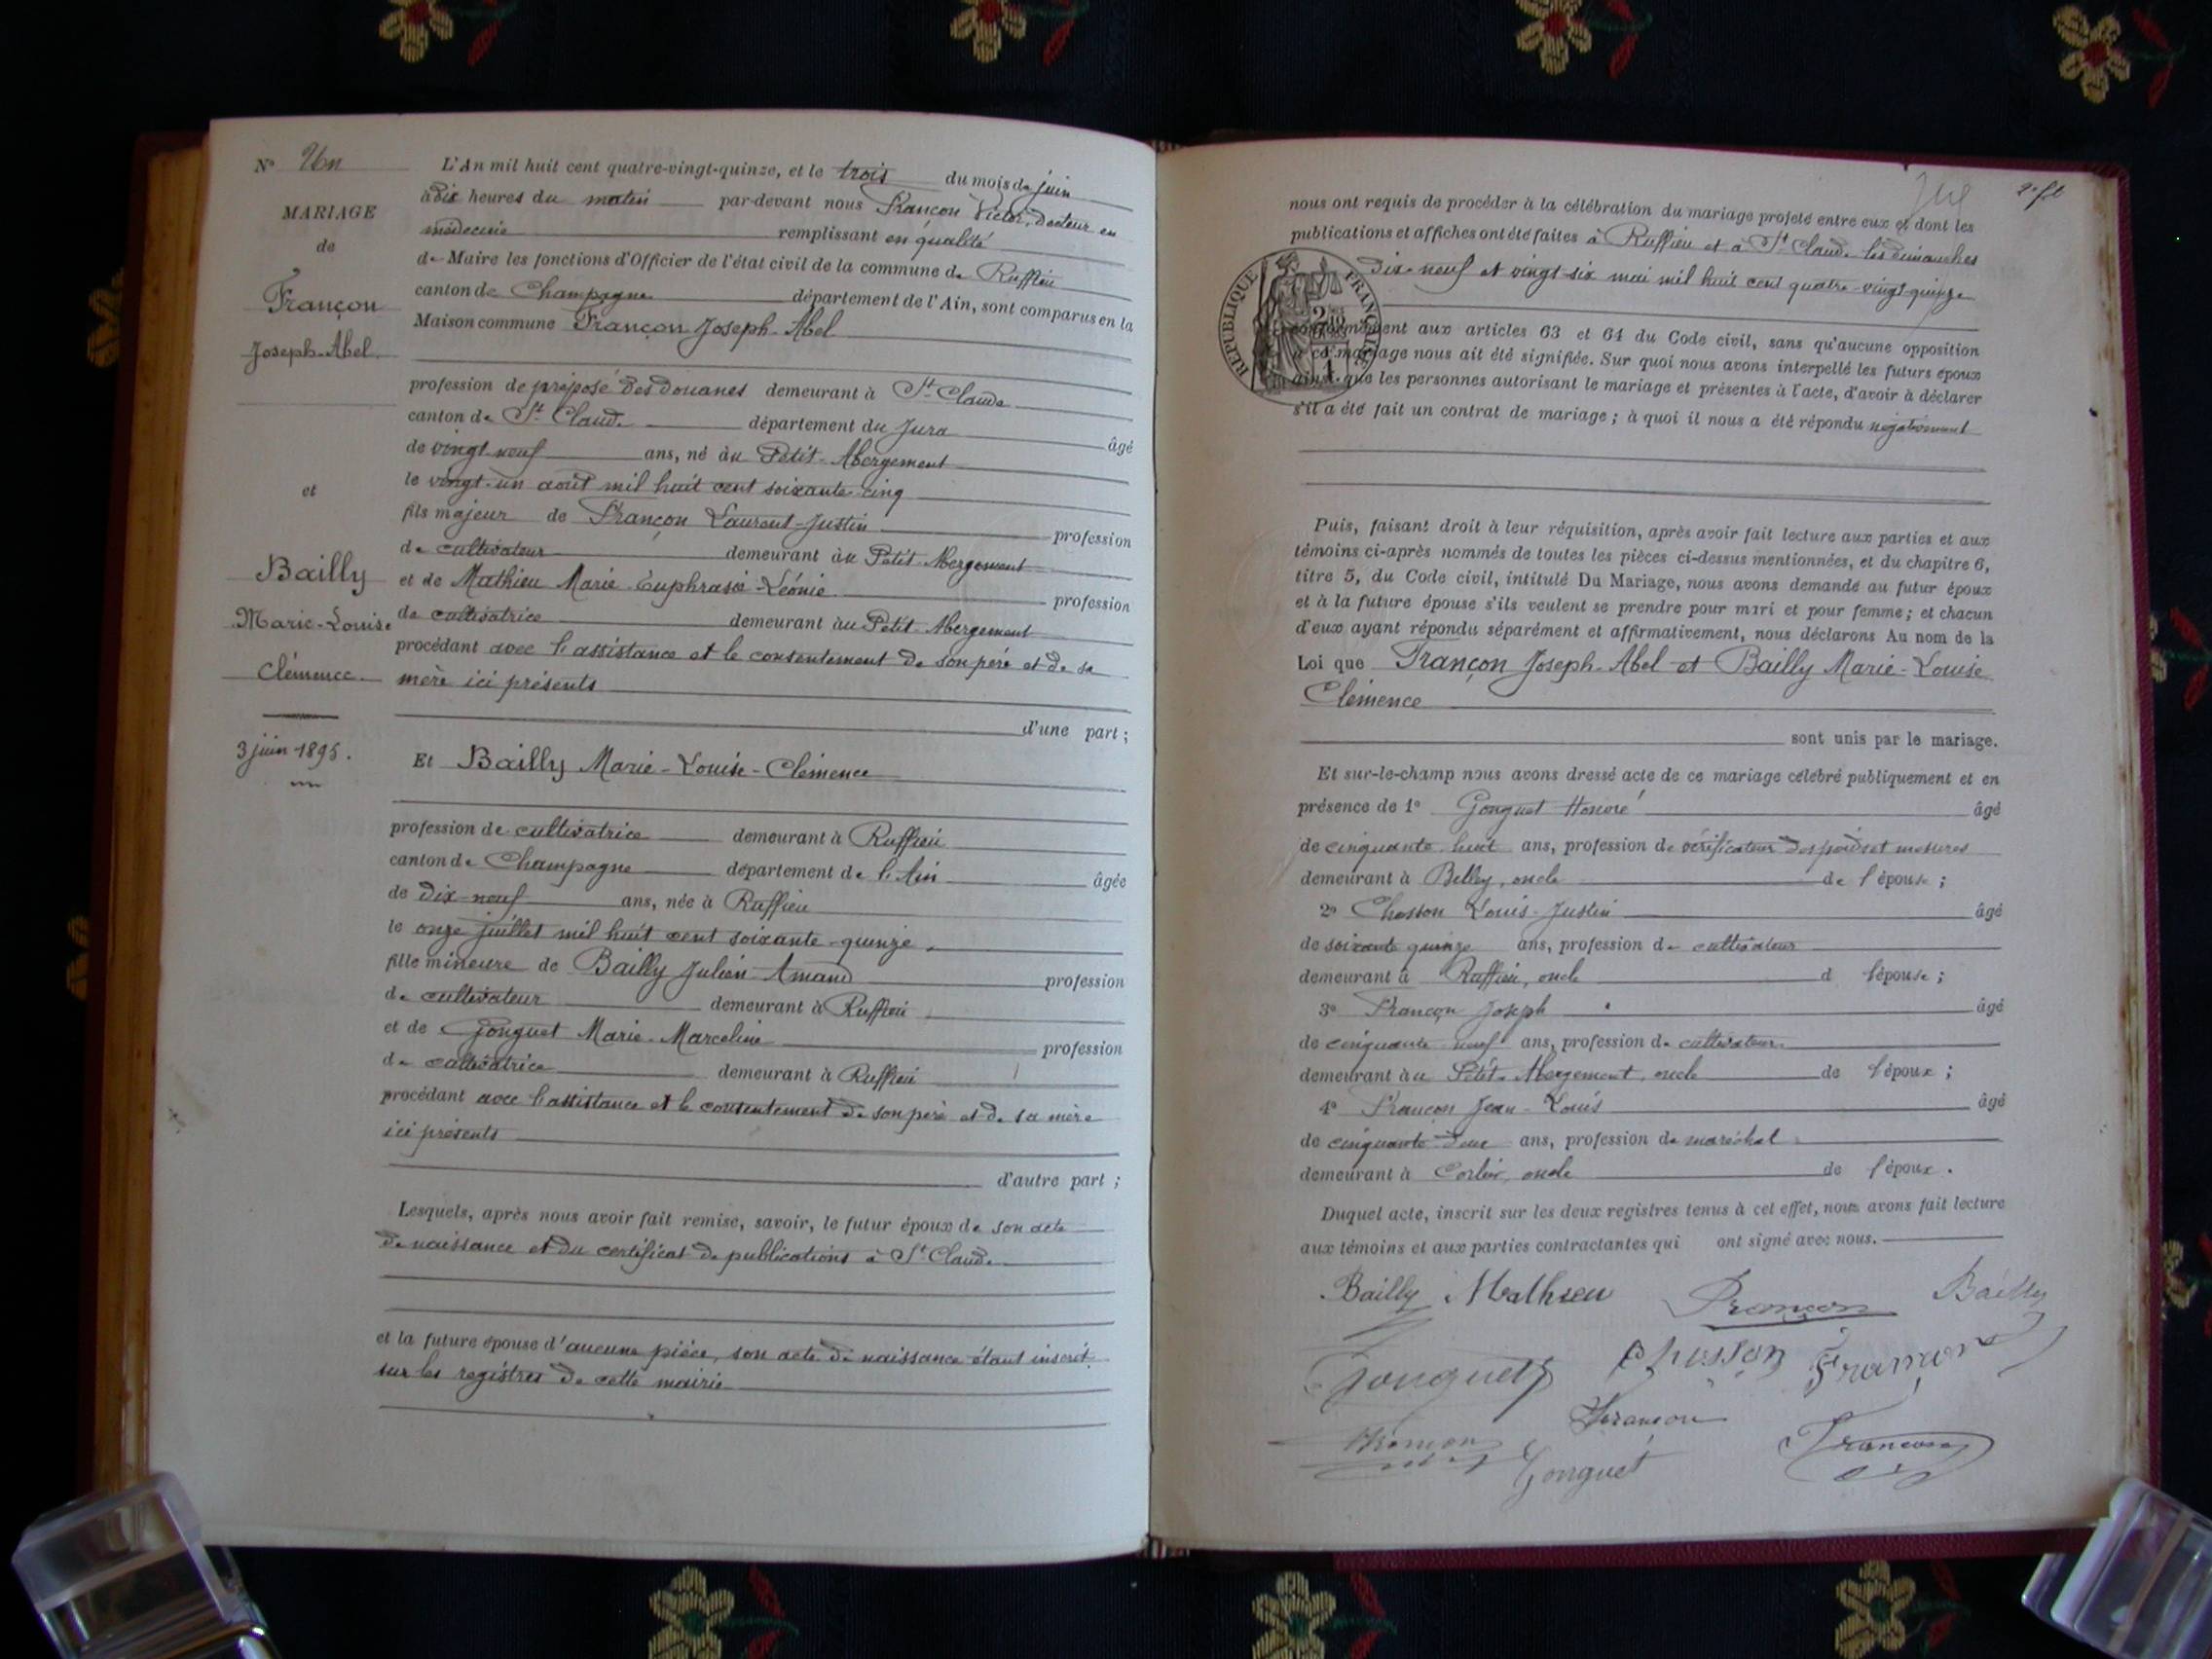 N° Un
MARIAGE
de
Françon
Joseph-Abel
et
Bailly
Marie-Louise
Clémence
3 juin 1895.
L'An mil huit cent quatre-vingt-quinze, et le trois du mois de juin
à dix heures du matin par-devant nous Françon Victor, docteur en
médecine remplissant en qualité
de Maire les fonctions d'Officier de l'état civil de la commune de Ruffieu
canton de Champagne département de l'Ain, sont comparus en la
Maison commune Françon Joseph-Abel
profession de préposé des douanes demeurant à St Claude
canton de St Claude département du Jura âgé
de vingt neuf ans, né au Petit-Abergement
le vingt-un août mil huit cent soixante-cinq
fils majeur de Françon Laurent-Justin profession
de cultivateur demeurant au Petit-Abergement
et de Mathieu Marie-Euphrasie-Léonie profession
de cultivatrice demeurant au Petit-Abergement
procédant avec l'assistance et le consentement de son père et de sa
mère ici présents
d'une part ;
Et Bailly Marie-Louise-Clémence
profession de cultivatrice demeurant à Ruffieu
canton de Champagne département de l'Ain âgée
de dix-neuf ans, née à Ruffieu
le onze juillet mil huit cent soixante-quinze
fille mineure de Bailly Julien-Amand profession
de cultivateur demeurant à Ruffieu
et de Gonguet Marie-Marceline profession
de cultivatrice demeurant à Ruffieu
procédant avec l'assistance et le consentement de son père et de sa mère
ici présents
d'autre part ;
Lesquels, après nous avoir fait remise, savoir, le futur époux de son acte
de naissance et du certificat de publications à St Claude
et la future épouse d'aucune pièce, son acte de naissance étant inscrit
sur les registres de cette mairie
nous ont requis de procéder à la célébration du mariage projeté entre eux et dont les
publications et affiches ont été faites à Ruffieu et à St Claude les dimanches
dix-neuf et vingt-six mai mil huit cent quatre-vingt-quinze
REPUBLIQUE FRANÇAISE
conformément aux articles 63 et 64 du Code civil, sans qu'aucune opposition
à ce mariage nous ait été signifiée. Sur quoi nous avons interpellé les futurs époux
ainsi que les personnes autorisant le mariage et présentes à l'acte, d'avoir à déclarer
s'il a été fait un contrat de mariage ; à quoi il nous a été répondu négativement
Puis, faisant droit à leur réquisition, après avoir fait lecture aux parties et aux
témoins ci-après nommés de toutes les pièces ci-dessus mentionnées, et du chapitre 6,
titre 5, du Code civil, intitulé Du Mariage, nous avons demandé au futur époux
et à la future épouse s'ils veulent se prendre pour mari et pour femme ; et chacun
d'eux ayant répondu séparément et affirmativement, nous déclarons Au nom de la
Loi que Françon Joseph-Abel et Bailly Marie-Louise
Clémence
sont unis par le mariage.
Et sur-le-champ nous avons dressé acte de ce mariage célébré publiquement et en
présence de 1° Gonguet Honoré âgé
de cinquante huit ans, profession de vérificateur des poids et mesures
demeurant à Belley, oncle de l'épouse ;
2° Chosson Louis-Justin âgé
de soixante quinze ans, profession de cultivateur
demeurant à Ruffieu, oncle d l'épouse ;
3° Françon Joseph âgé
de cinquante neuf ans, profession de cultivateur
demeurant au Petit-Abergement, oncle de l'époux ;
4° Françon Jean-Louis âgé
de cinquante deux ans, profession de maréchal
demeurant à Corlier, oncle de l'époux.
Duquel acte, inscrit sur les deux registres tenus à cet effet, nous avons fait lecture
aux témoins et aux parties contractantes qui ont signé avec nous.
Bailly Mathieu Françon Bailly
Gonguet Chosson Françon
Françon
Gonguet Françon